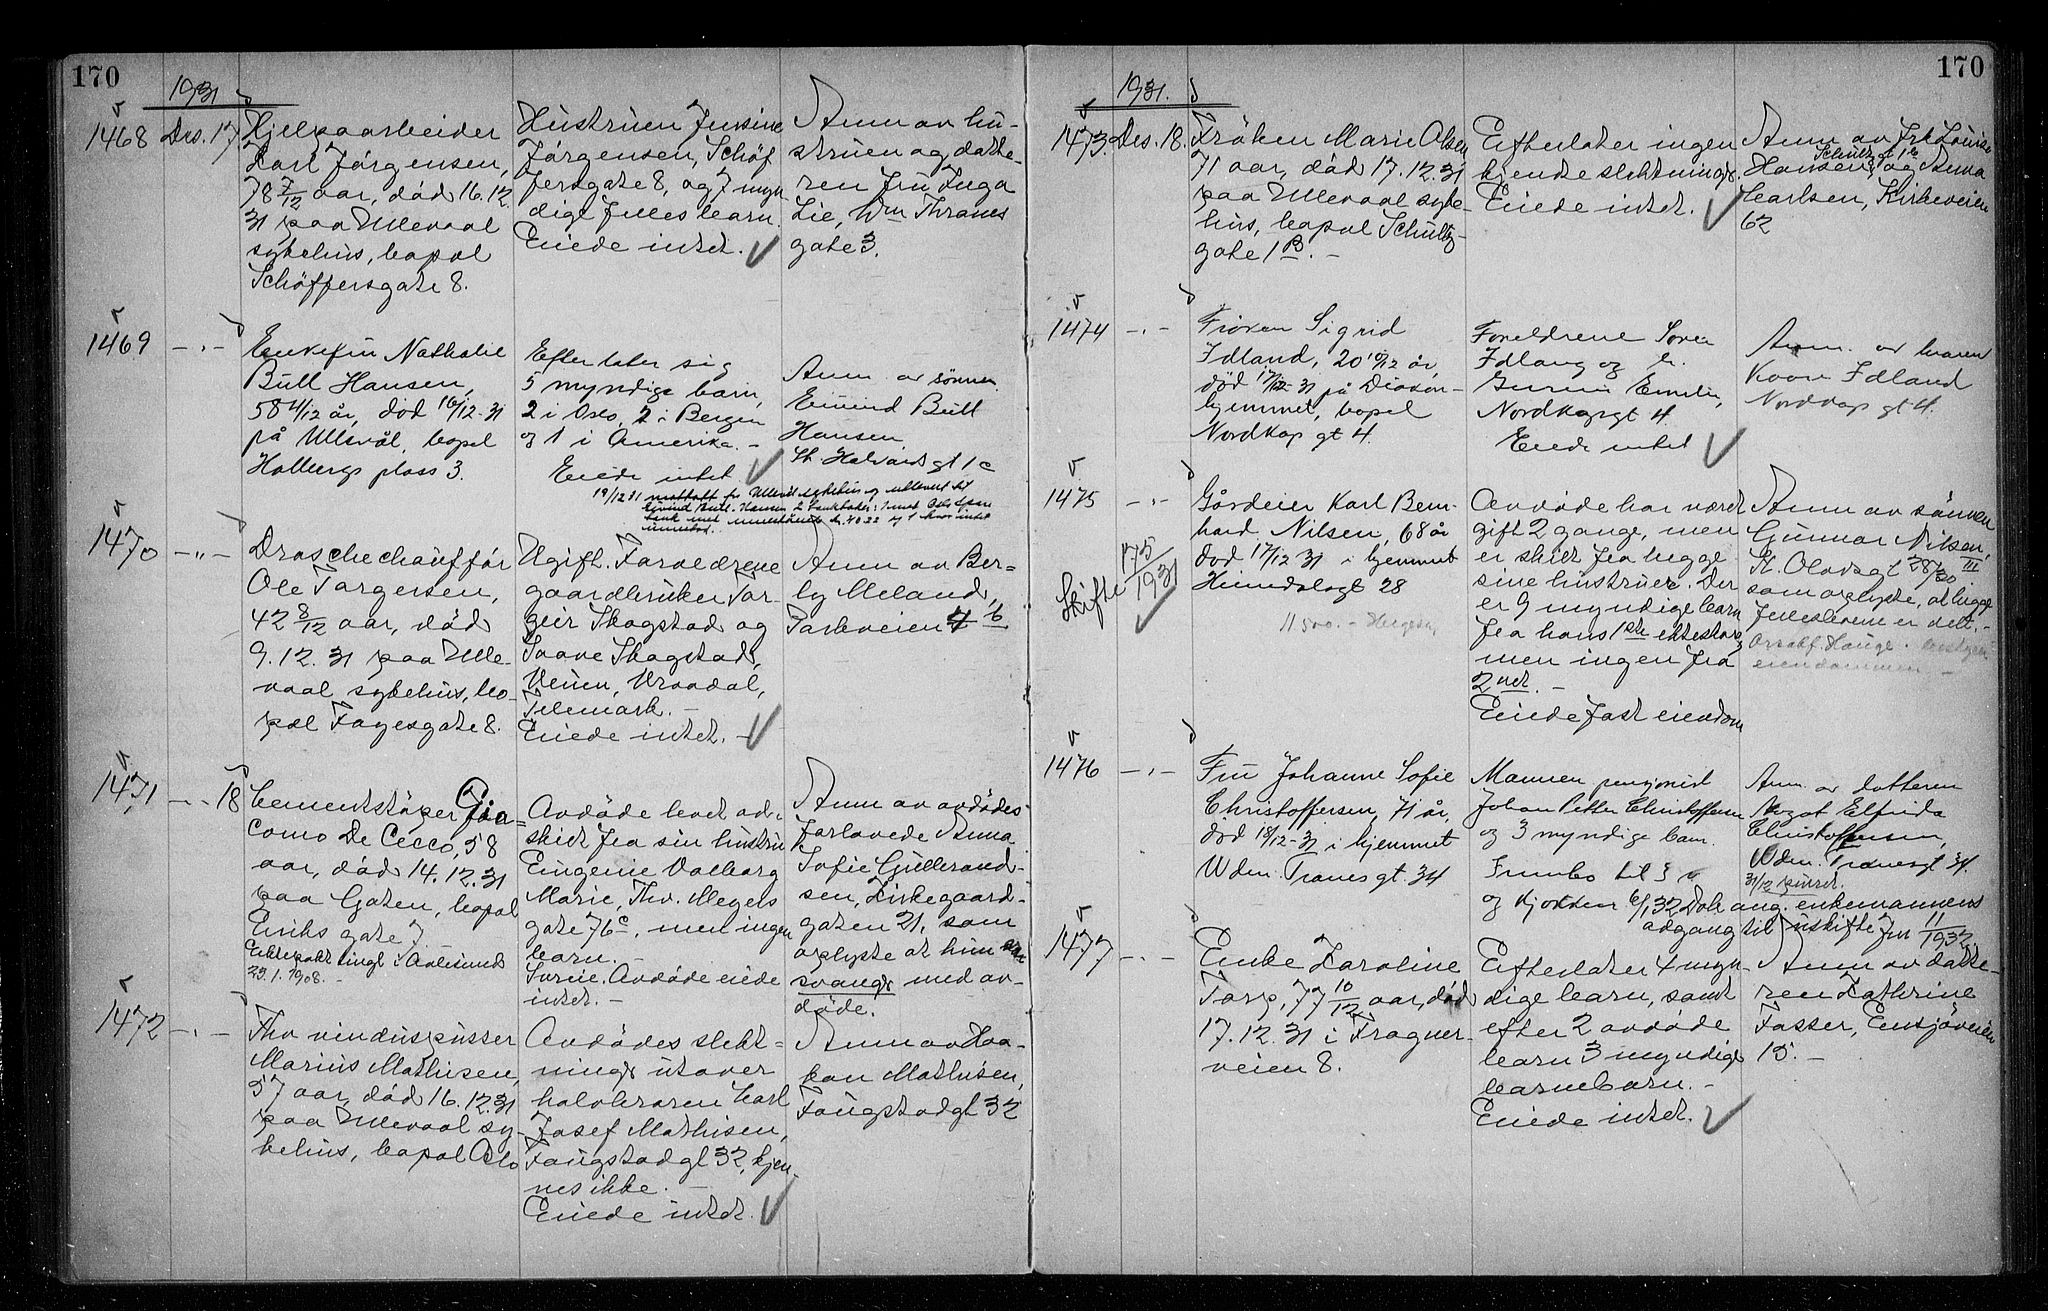 170
1931
1468 Des. 17
Hjelpearbeider
Karl Jörgensen,
78 7/12 aar, död 16.12.
31 paa Ullevaal
sykehus, bopæl
Schöffersgate 8.
Hustruen Jensine
Jörgensen, Schöf
fersgate 8, og 7 myn
dige fellesbarn.
Eiede intet.
Anm av hu-
struen og datte-
ren fru Inga
Lie, Wm Thranes
gate 3.
1469 - " -
Enkefru Nathalie
Bull Hansen,
58 4/12 år, död 16/12-31
på Ullevål, bopel
Holbergs plass 3.
Efterlater sig
5 myndige barn,
2 i Oslo, 2 i Bergen
og 1 i Amerika. -
Eiede intet
19/12 31 mottatt fr Ullevål sykehus og utlevert til
Eivind Bull-Hansen 2 bankbøker: 1 med Oslo Spare
bank med innestående kr. 40.22 og 1 hvor intet
innestod.
Anm. av sönnen
Eivind Bull
Hansen
St. Halvards gt 1c
1470 - " -
Droschechaufför
Ole Torgersen,
42 8/12 aar, död
9.12.31 paa Ulle-
vaal sykehus, bo-
pæl Fayesgate 8.
Ugift. Foreldrene
gaardbruker Tor-
geir Skogstad og
Saave Skogstad,
Veum, Vraadal,
Telemark. -
Eiede intet. -
Anm av Ber-
ly Meland,
Parkveien 4 b
1471 - " - 18
Cementstöper Gia-
como De Cecco, 58
aar, död 14.12.31
paa Gaten, bopæl
Eiriks gate 7.
Ektepakt tingl. i Aalesund
23.1.1908. -
Avdöde levet ad-
skilt fra sin hustru
Eugenie Valborg
Marie, Thv. Meyers
gate 76c, men ingen
barn. -
Avdöde eiede
intet. -
Anm av avdödes
forlovede Anna
Sofie Gulbrand-
sen, Kirkegaard-
gaten 21, som
oplyste at hun er
svanger med av-
döde.
1472 - " -
Fhv vinduspusser
Marius Mathisen,
57 aar, död 16.12.31
paa Ullevaal sy-
kehus, bopæl Oslo
Avdödes slekt-
ninger utover
halvbroren Karl
Josef Mathisen,
Faugstadgt 32, kjen-
nes ikke. -
Eiede intet.
Anm av Haa-
kon Mathisen,
Faugstadgt 32
170
1931.
1473. Des. 18.
Fröken Marie Olsen
71 aar, död 17.12.31
paa Ullevaal syke-
hus, bopæl Schultz-
gate 1 B. -
Efterlater ingen
kjendte slektninger.
Eiede intet.
Anm av Frk Lovise
Hansen, Schultzgt 1B og Anna
Carlsen, Kirkeveien
62
1474 - " -
Frøken Sigrid
Idland, 20 10/12 år,
død 17/12-31 på Diakon-
hjemmet, bopel
Nordkap gt 4.
Foreldrene Soren
Idland og h.
Emilie,
Nordkapgt 4.
Eiede intet
Anm. av broren
Kåre Idland
Nordkap gt 4.
1475 - " -
Skifte 175/1931
Gårdeier Karl Bern-
hard Nilsen, 68 år
död 17/12 31 i hjemmet
Hausmannsgt 28
11500.-
Avdöde har været
gift 2 gange, men
er skilt fra begge
sine hustruer. Der
er 9 myndige barn
fra hans 1ste ekteskap,
men ingen fra
2net. -
Eiede fast eiendom
Anm av sönnen
Gunnar Nilsen,
St. Olavsgt 28/30 III
som oplyste, at begge
fellesboene er delt. -
eiendommen -
1476 - " -
Fru Johanne Sofie
Christoffersen, 71 år,
död 18/12-31 i hjemmet
Wdm. Tranes gt. 34
Mannen pensjonist
Johan Petter Christoffersen
og 3 myndige barn.
Innbo til
og kjökken 6/1 32 Dok ang. enkemannens
adgang til uskifte Jnr 11/1932
Anm. av datteren
Margot Elfrida
Christoffersen,
Wdm. Tranesgt 34.
31/12
1477 - " -
Enke Karoline
Torp, 77 10/12 aar, död
17.12.31 i Frogner-
veien 8.
Efterlater 4 myn-
dige barn, samt
efter 2 avdöde
barn 3 myndige
barnebarn. -
Eiede intet.
Anm av datte-
ren Kathrine
Fosser, Ensjöveien
15. -